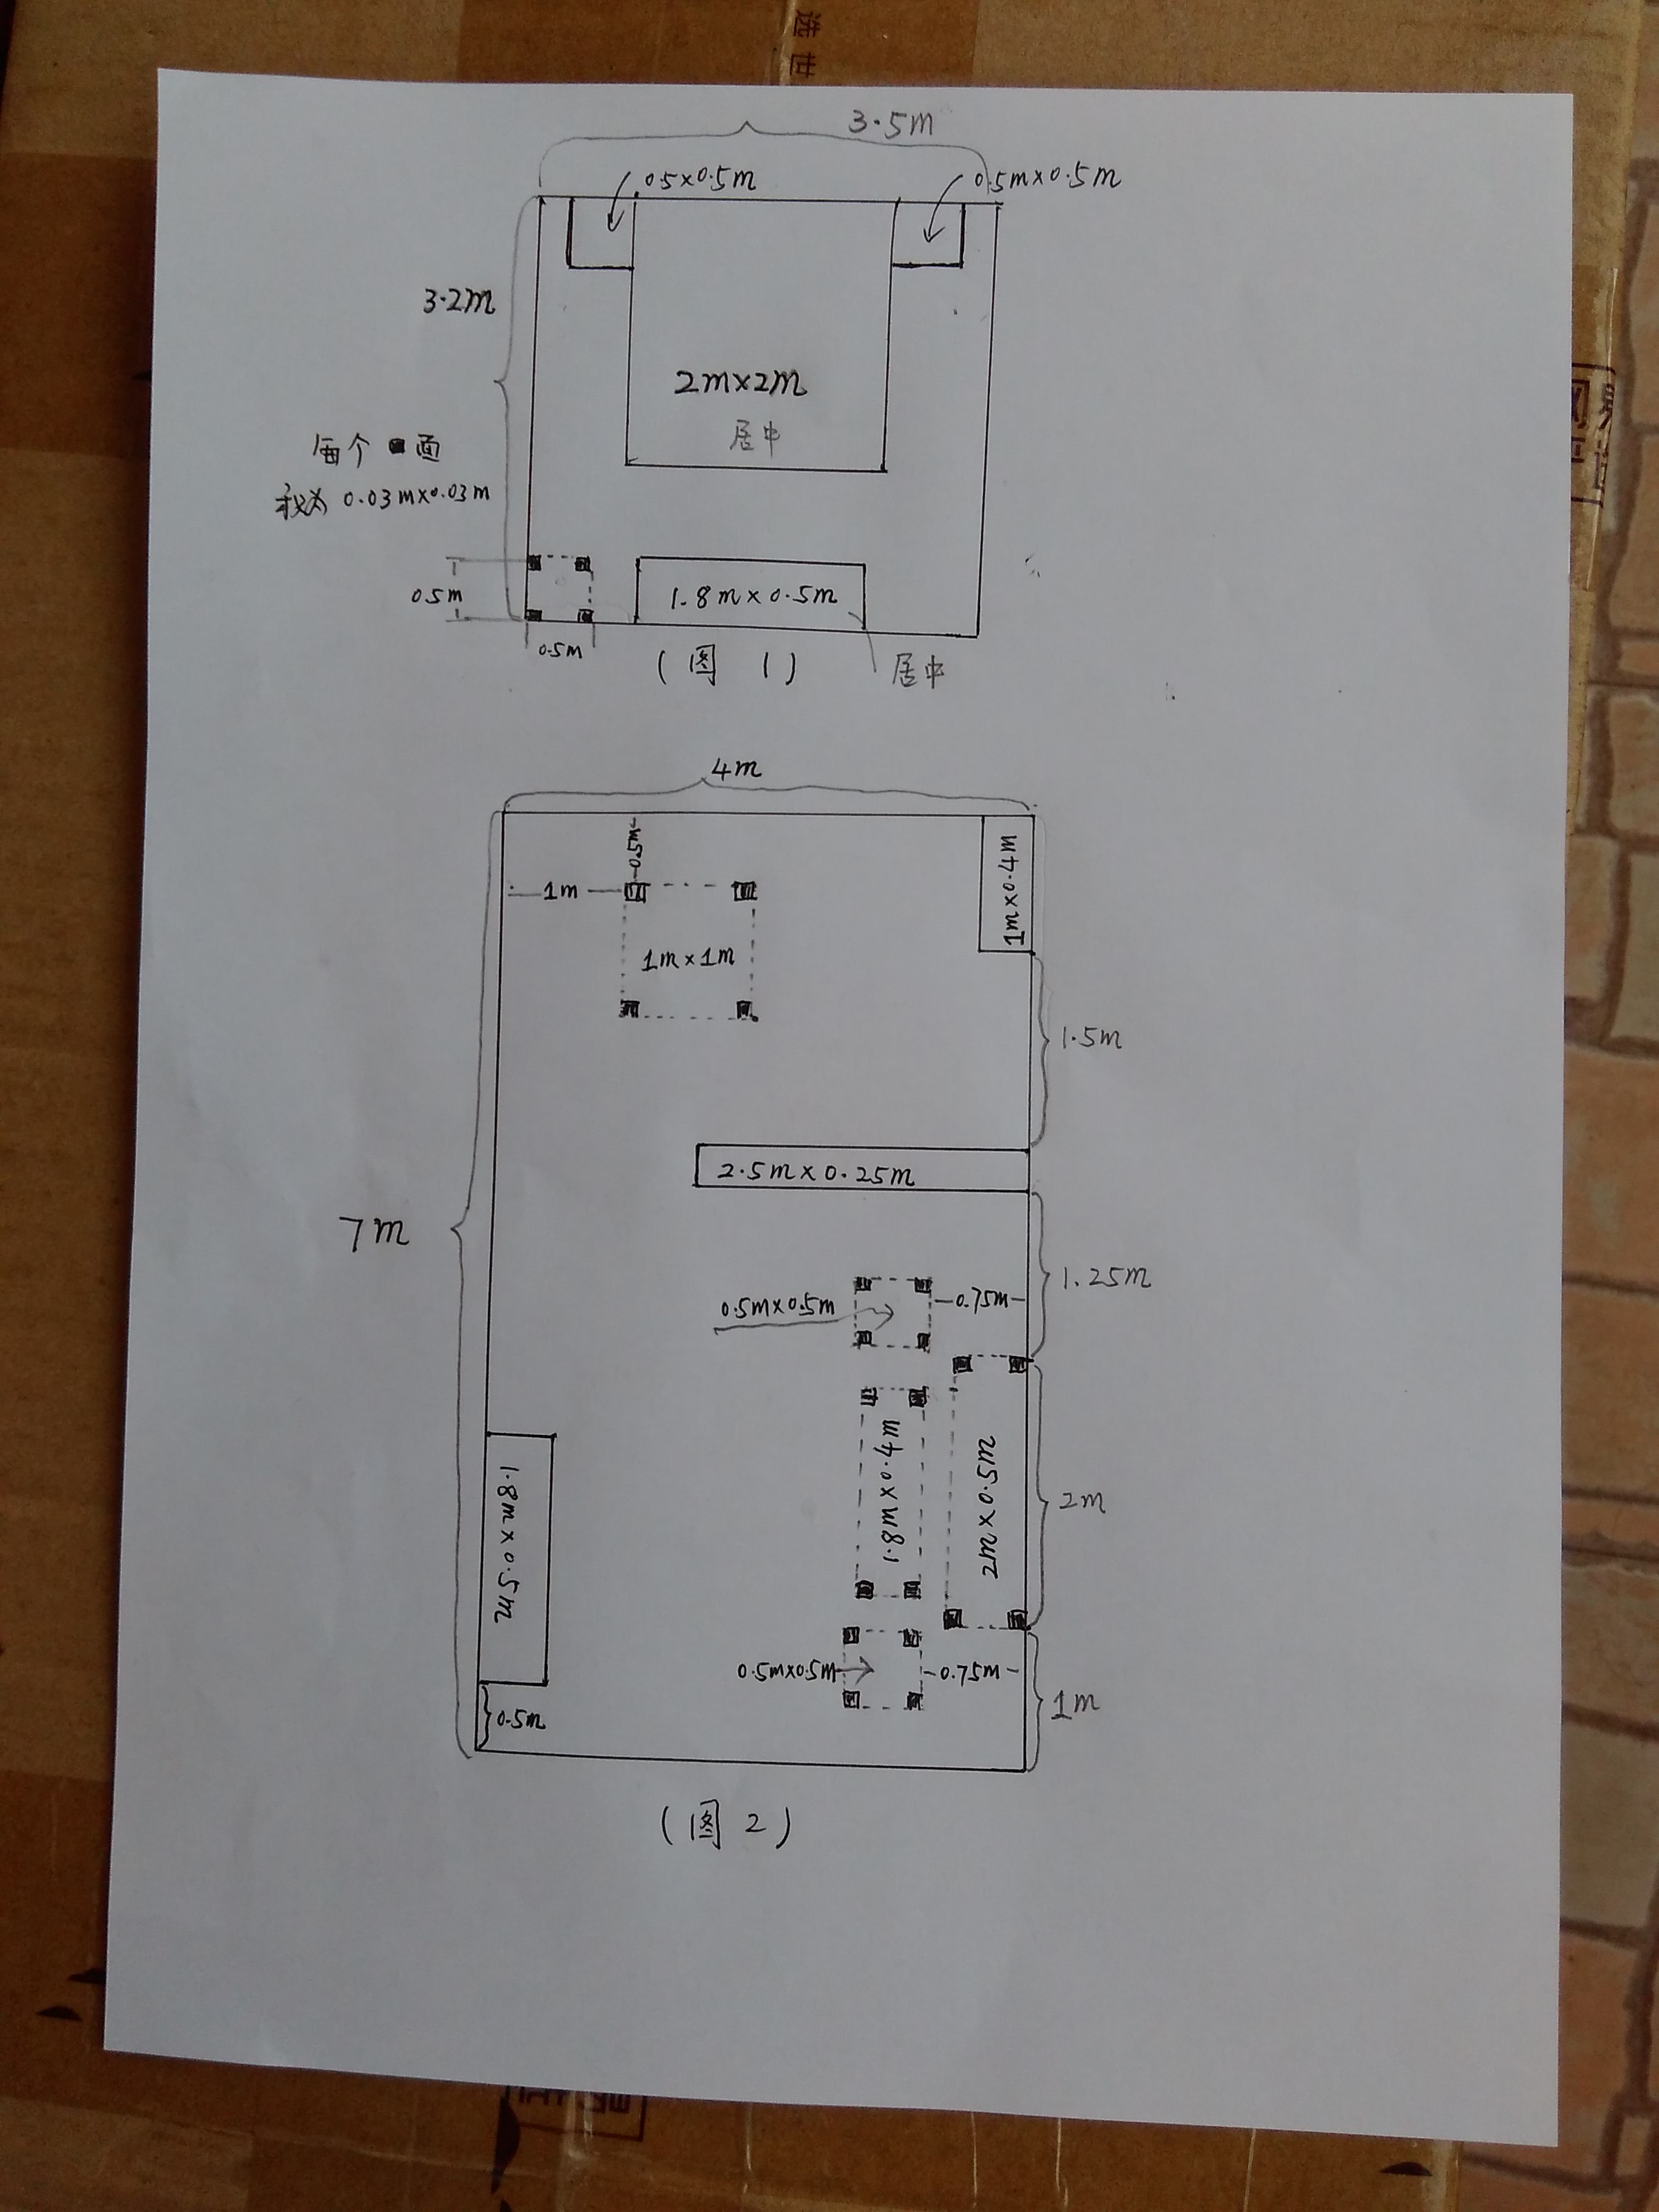 选世
3.5m
0.5×0.5m
0.5m×0.5m
3.2m
2m×2m
居中
每个■面
积为 0.03m×0.03m
0.5m
1.8m×0.5m
0.5m
(图 1)
居中
4m
0.5m
1m
1m×0.4m
1m×1m
1.5m
2.5m×0.25m
7m
1.25m
0.5m×0.5m
0.75m
1.8m×0.4m
2m×0.5m
2m
1.8m×0.5m
0.5m×0.5m
0.75m
1m
0.5m
(图 2)